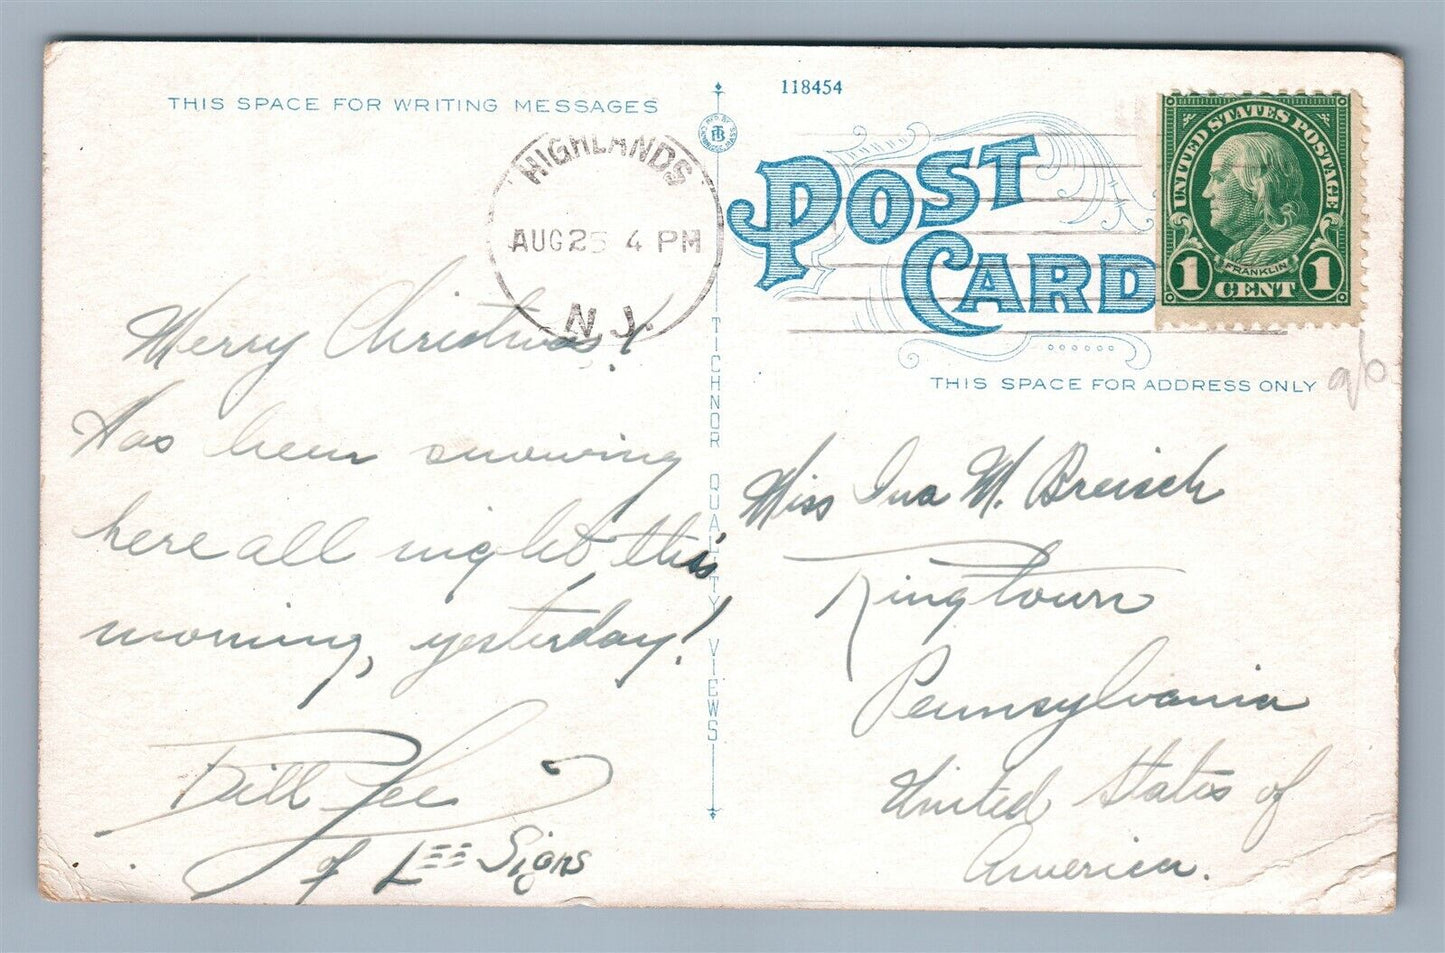 THIS SPACE FOR WRITING MESSAGES
118454
HIGHLANDS
AUG 25 4 PM
N. J.
Merry Christmas!
Has been snowing
here all night this
morning, yesterday!
Bill Lee
of LEE Signs
TICHNOR QUALITY VIEWS
POST
CARD
UNITED STATES POSTAGE
FRANKLIN
1 CENT 1
THIS SPACE FOR ADDRESS ONLY
Miss Ina M. Breisch
Ringtown
Pennsylvania
United States of
America.